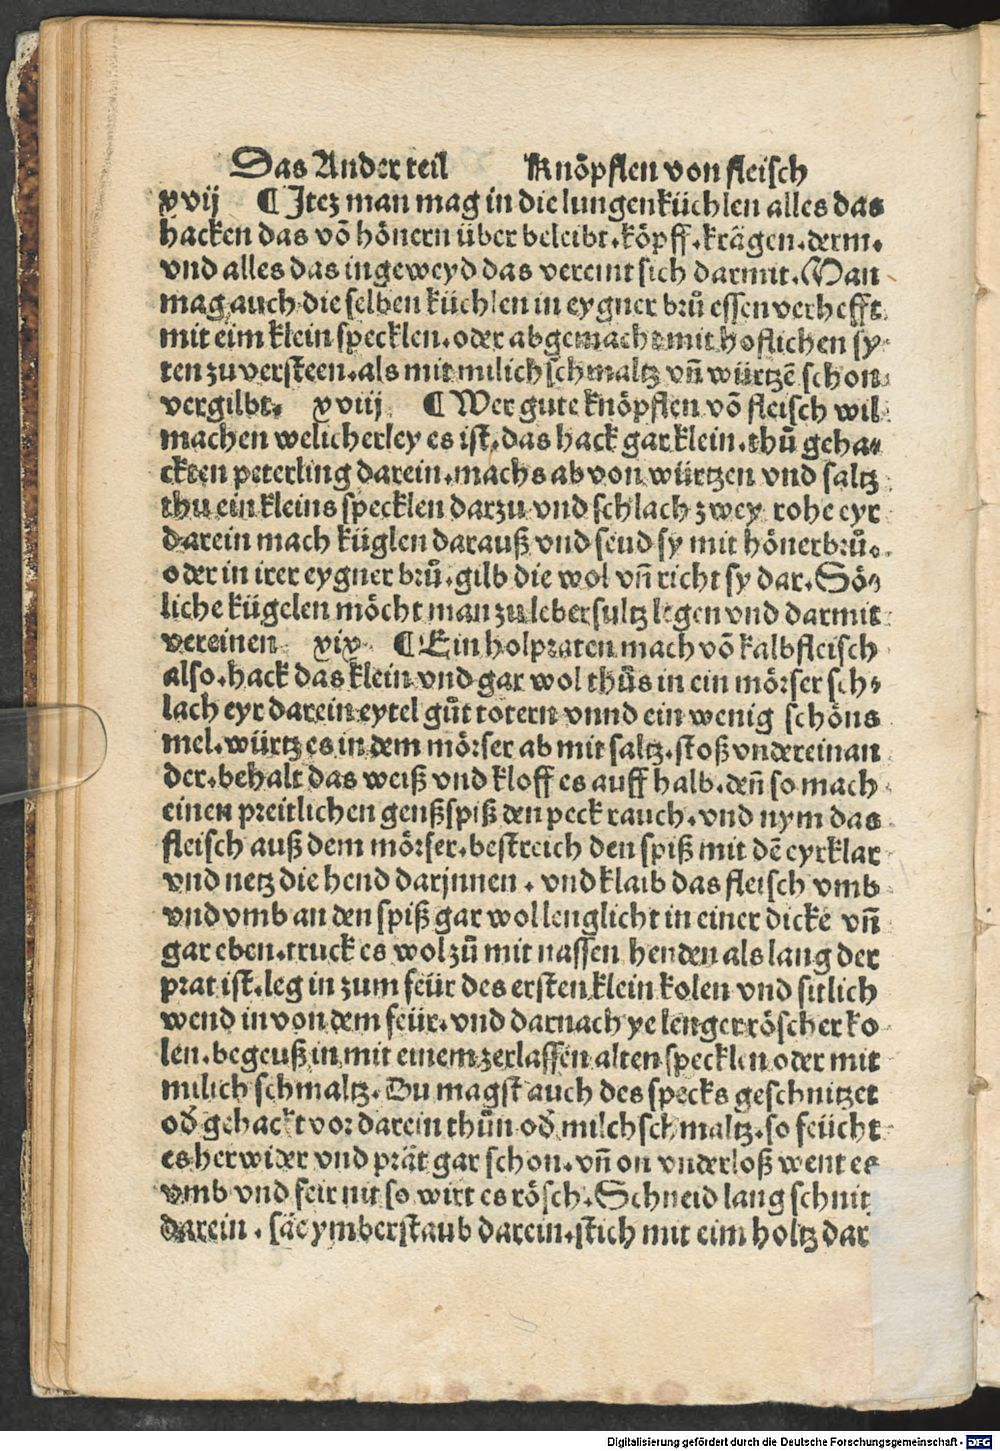 Das Ander teil Knöpflen von fleisch
xvij ¶ Jtez man mag in die lungenküchlen alles das
hacken das võ hönern über beleibt. köpff. krägen. derm.
vnd alles das ingeweyd das vereint sich darmit. Man
mag auch die selben küchlen in eygner brů essen verhefft
mit eim klein specklen. oder abgemacht mit hoflichen sy⸗
ten zu versteen. als mit milich schmaltz vñ würtzẽ schon
vergilbt. xviij ¶ Wer gute knöpflen võ fleisch wil
machen welicherley es ist. das hack gar klein. thů geha⸗
ckten peterling darein. machs ab von würtzen vnd saltz
thu ein kleins specklen darzu vnd schlach zwey rohe eyr
darein mach küglen darauß vnd seud sy mit hönerbrů.
oder in irer eygner brů. gilb die wol vñ richt sy dar. Sö⸗
liche kügelen möcht man zu lebersultz legen vnd darmit
vereinen xix ¶ Ein holpraten mach võ kalbfleisch
also. hack das klein vnd gar wol thůs in ein mörser sch⸗
lach eyr darein eytel gůt totern vnnd ein wenig schöns
mel. würtz es in dem mörser ab mit saltz. stoß vndereinan
der. behalt das weiß vnd kloff es auff halb. deñ so mach
einen preitlichen genßspiß den peck rauch. vnd nym das
fleisch auß dem mörser. bestreich den spiß mit dẽ eyrklar
vnd netz die hend darjnnen. vnd klaib das fleisch vmb
vnd vmb an den spiß gar wol lenglicht in einer dicke vñ
gar eben. truck es wol zů mit nassen henden als lang der
prat ist. leg in zum feür des ersten klein kolen vnd sitlich
wend in von dem feür. vnd darnach ye lenger röscher ko
len. begeuß in mit einem zerlassen alten specklen oder mit
milich schmaltz. Du magst auch des specks geschnitzet
od̕ gehackt vor darein thůn od̕ milchschmaltz. so feücht
es herwider vnd prät gar schon. vñ on vnderloß went es
vmb vnd feir nit so wirt es rösch. Schneid lang schnit
darein. säe ymberstaub darein. stich mit eim holtz dar
Digitalisierung gefördert durch die Deutsche Forschungsgemeinschaft - DFG